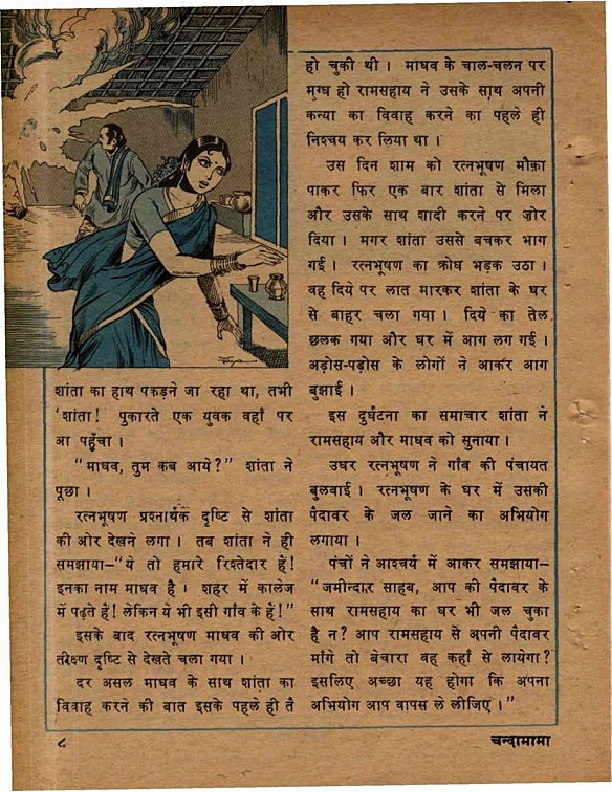 शांता का हाथ पकड़ने जा रहा था, तभी
'शांता! पुकारते एक युवक वहाँ पर
आ पहुँचा ।
"माधव, तुम कब आये?" शांता ने
पूछा ।
रत्नभूषण प्रश्नार्थक दृष्टि से शांता
की ओर देखने लगा । तब शांता ने ही
समझाया–"ये तो हमारे रिश्तेदार हैं!
इनका नाम माधव है । शहर में कालेज
में पढ़ते हैं! लेकिन ये भी इसी गाँव के हैं!"
इसके बाद रत्नभूषण माधव की ओर
तीक्ष्ण दृष्टि से देखते चला गया ।
दर असल माधव के साथ शांता का
विवाह करने की बात इसके पहले ही तै
हो चुकी थी । माधव के चाल-चलन पर
मुग्ध हो रामसहाय ने उसके साथ अपनी
कन्या का विवाह करने का पहले ही
निश्चय कर लिया था ।
उस दिन शाम को रत्नभूषण मौक़ा
पाकर फिर एक बार शांता से मिला
और उसके साथ शादी करने पर ज़ोर
दिया । मगर शांता उससे बचकर भाग
गई । रत्नभूषण का क्रोध भड़क उठा ।
वह दिये पर लात मारकर शांता के घर
से बाहर चला गया । दिये का तेल
छलक गया और घर में आग लग गई ।
अड़ोस-पड़ोस के लोगों ने आकर आग
बुझाई ।
इस दुर्घटना का समाचार शांता ने
रामसहाय और माधव को सुनाया ।
उधर रत्नभूषण ने गाँव की पंचायत
बुलवाई । रत्नभूषण के घर में उसकी
पैदावर के जल जाने का अभियोग
लगाया ।
पंचों ने आश्चर्य में आकर समझाया–
"जमीन्दार साहब, आप की पैदावर के
साथ रामसहाय का घर भी जल चुका
है न? आप रामसहाय से अपनी पैदावर
माँगे तो बेचारा वह कहाँ से लायेगा?
इसलिए अच्छा यह होगा कि अपना
अभियोग आप वापस ले लीजिए ।"
८
चन्दामामा